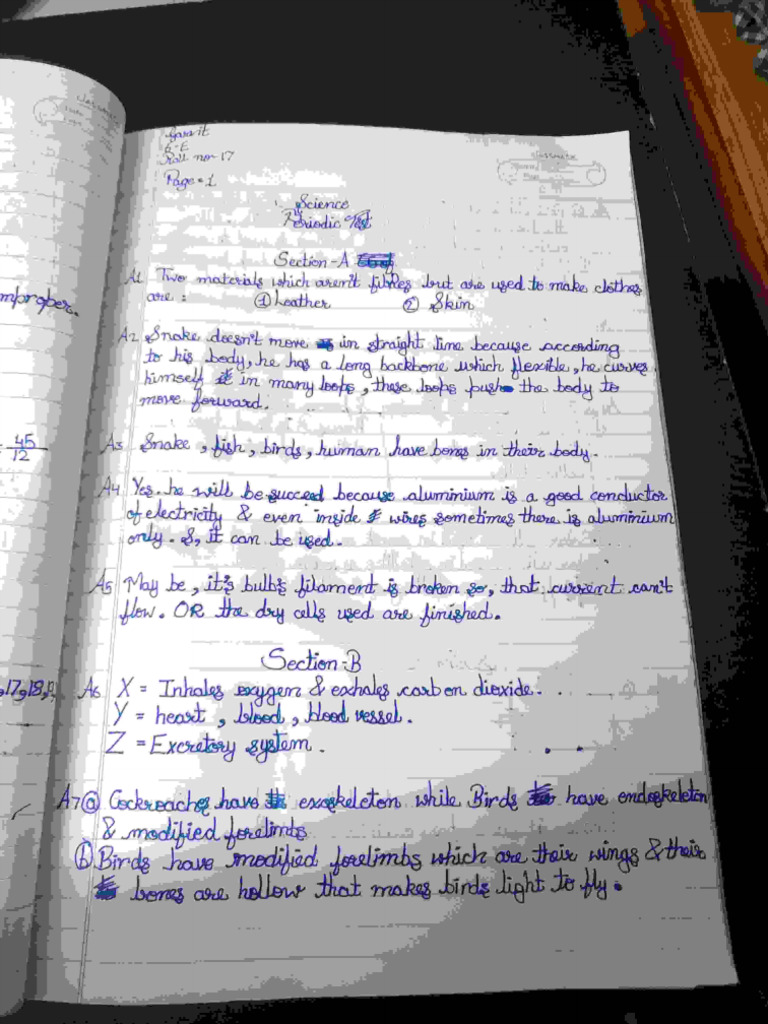 classmate
Garvit
6-E
Roll no- 17
Page = 1
classmate
Science
Periodic Test
Section-A
A1 Two materials which aren't fibres but are used to make clothes
are : ① Leather ② Skin
A2 Snake doesn't move in straight line because according
to his body, he has a long backbone which flexible, he curves
himself in many loops, these loops push the body to
move forward.
A3 Snake, fish, birds, human have bones in their body.
A4 Yes. he will be succeed because aluminium is a good conductor
of electricity & even inside wires sometimes there is aluminium
only. S, it can be used.
A5 May be, it's bulb's filament is broken so, that current can't
flow. OR the dry cells used are finished.
Section-B
A6 X = Inhales oxygen & exhales carbon dioxide.
Y = heart, blood, blood vessel.
Z = Excretory system.
A7 ⓐ Cockroaches have exoskeleton while Birds have endoskeleton
& modified forelimbs
ⓑ Birds have modified forelimbs which are their wings & their
bones are hollow that makes birds light to fly.
mproper.
45
12
,17,18,